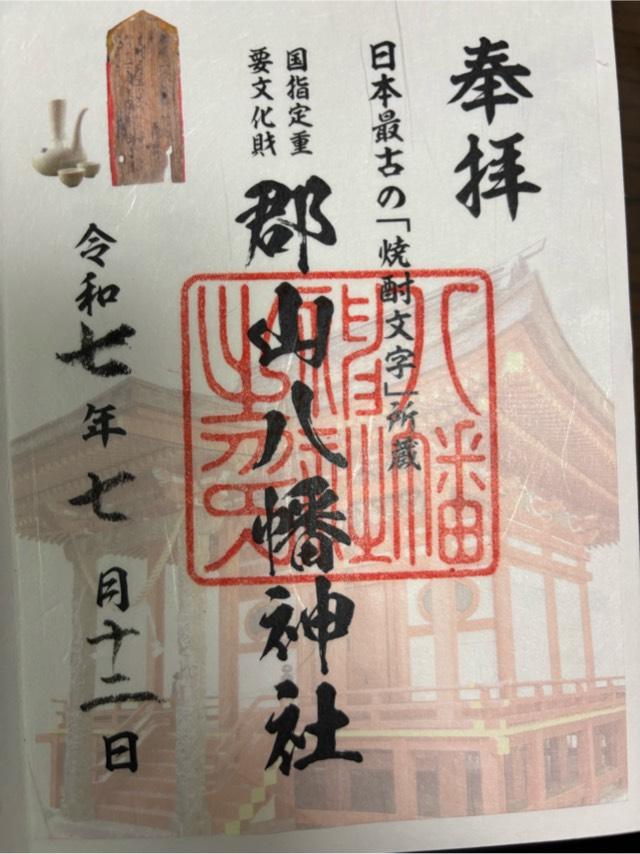 奉拝
日本最古の「焼酎文字」所蔵
国指定重
要文化財
郡山八幡神社
令和七年七月十二日